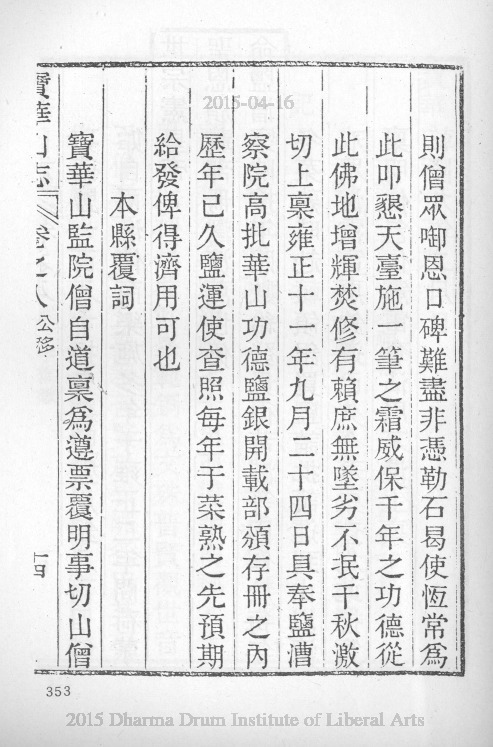 則僧眾啣恩口碑難盡非憑勒石曷使恆常為
此叩懇天臺施一筆之霜威保千年之功德從
此佛地增輝焚修有賴庶無墜劣不泯千秋激
切上稟雍正十一年九月二十四日具奉鹽漕
察院高批華山功德鹽銀開載部頒存冊之內
歷年已久鹽運使查照每年于菜熟之先預期
給發俾得濟用可也
本縣覆詞
寶華山監院僧自道稟為遵票覆明事切山僧
寶華山志 卷之八 公移 十四
353
2015-04-16
2015 Dharma Drum Institute of Liberal Arts